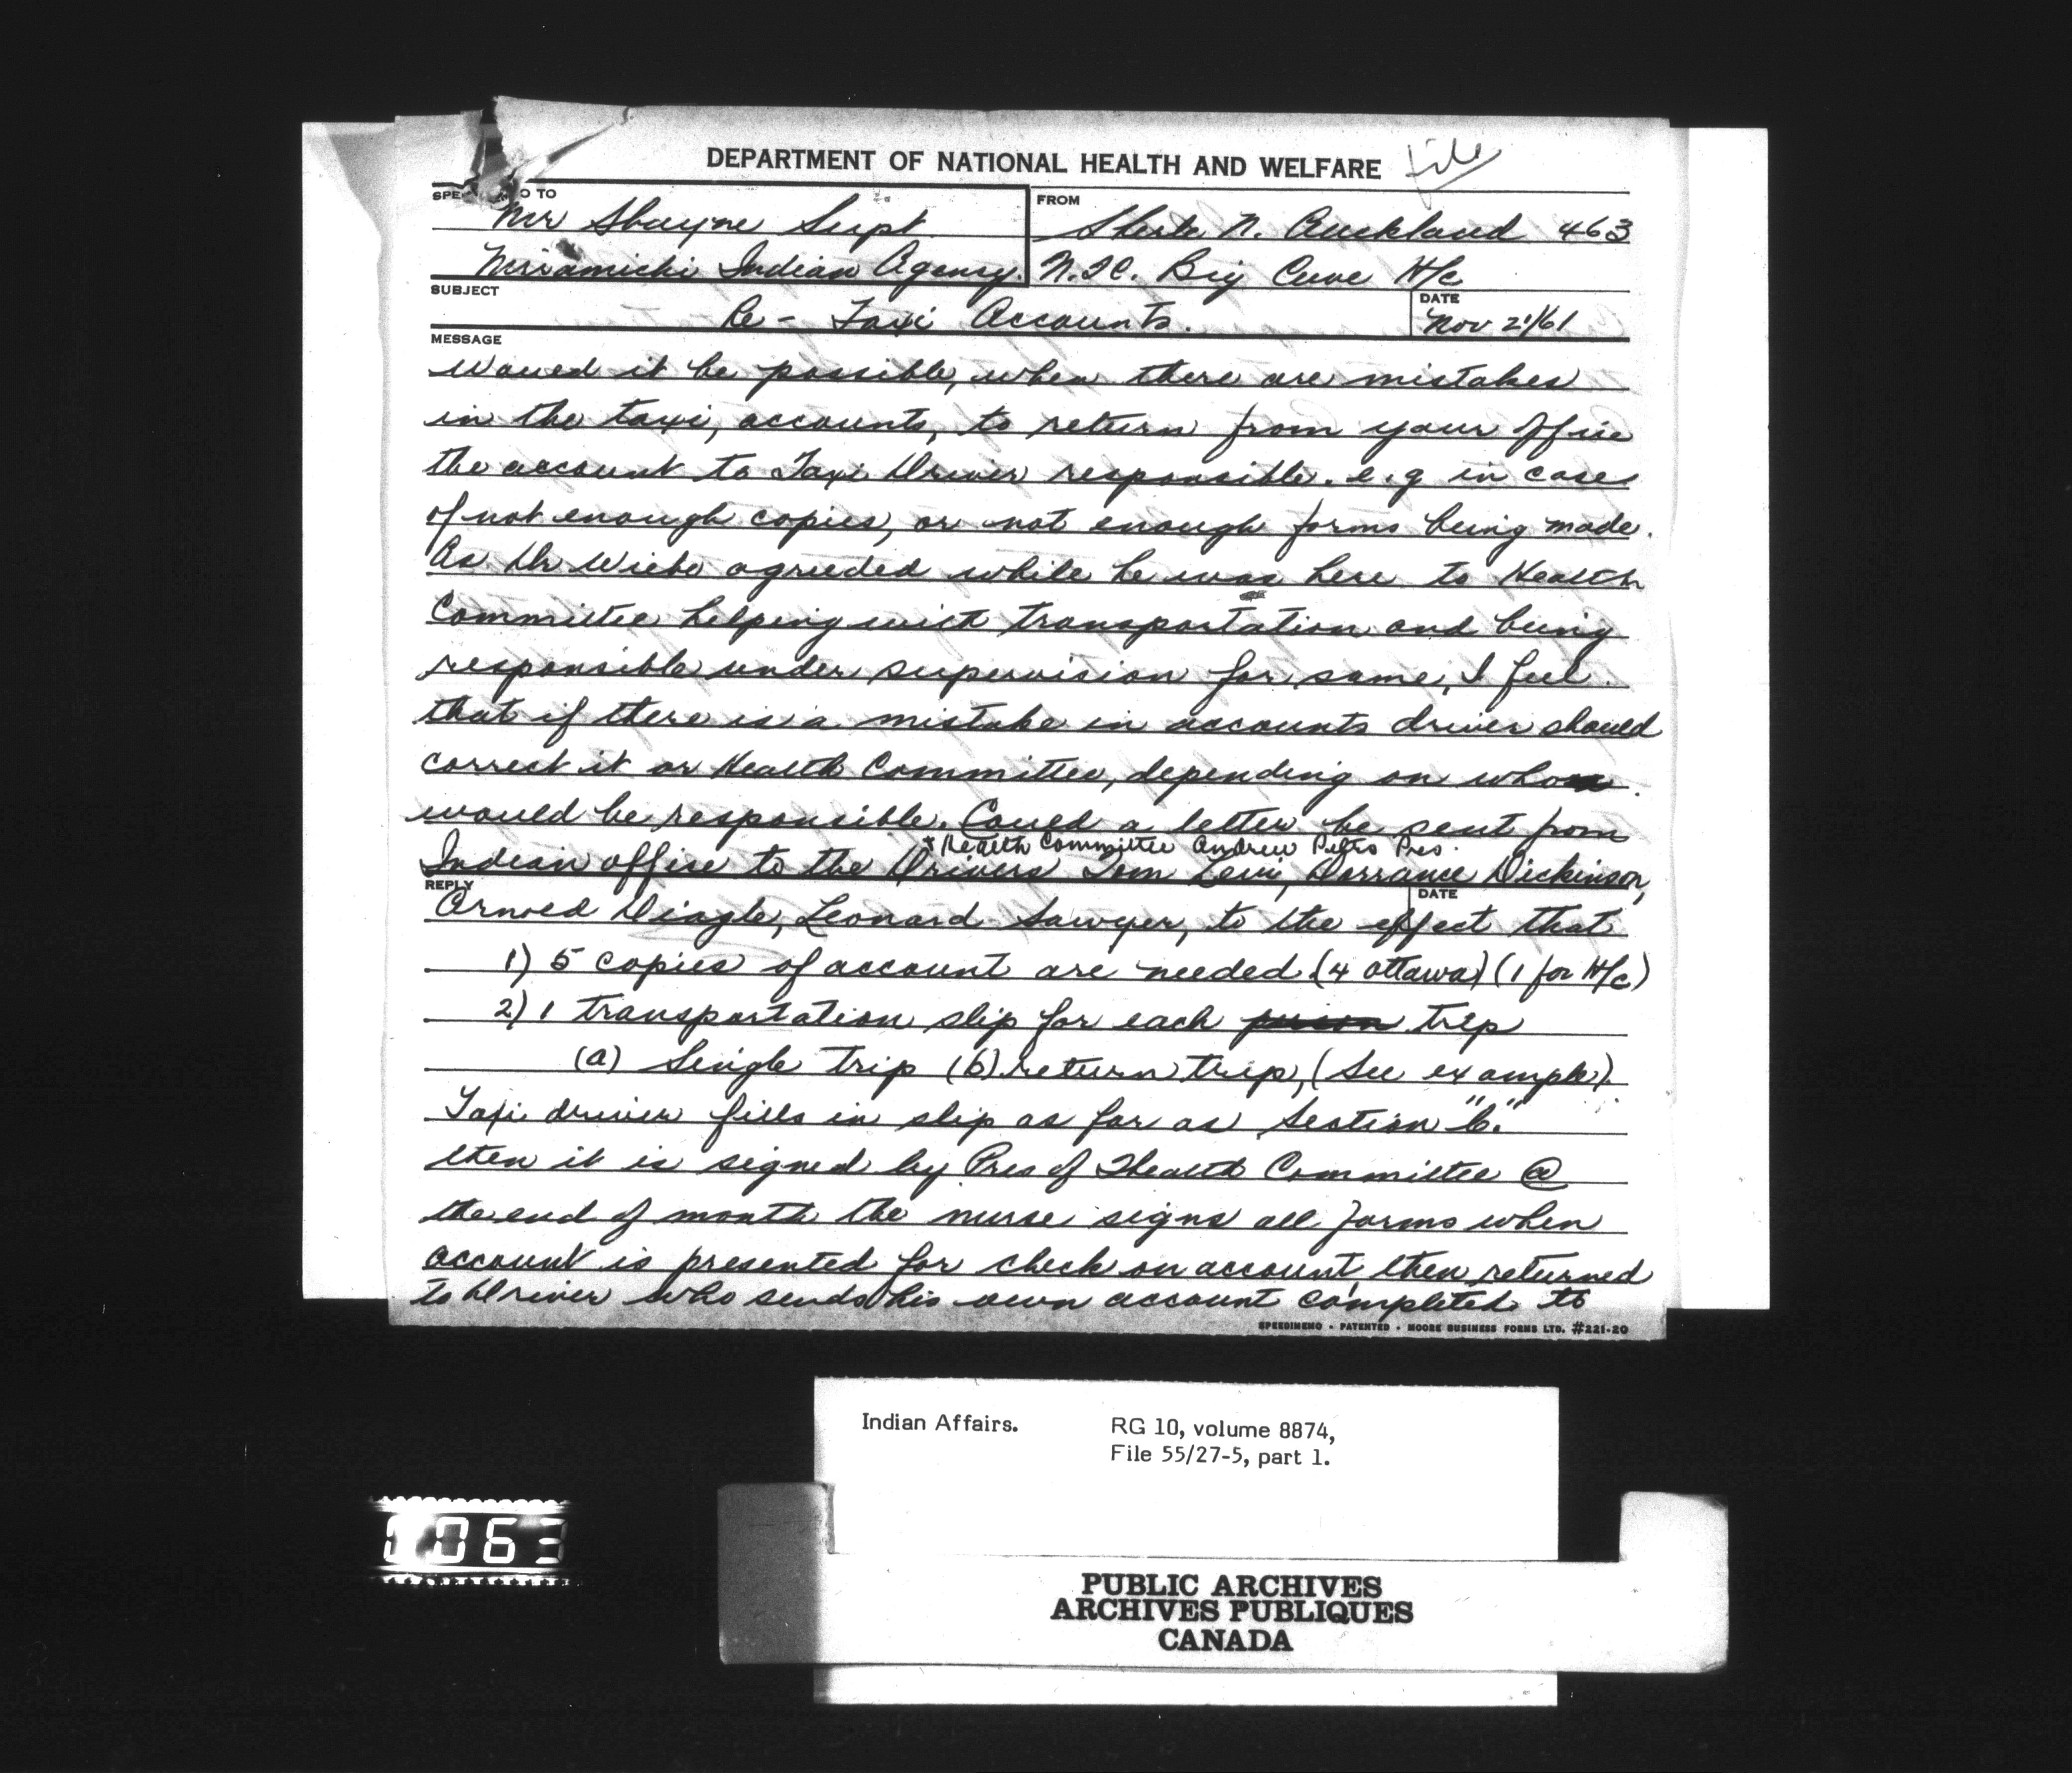 DEPARTMENT OF NATIONAL HEALTH AND WELFARE file
SPE O TO
Mr Shayne Supt.
Miramichi Indian Agency.
FROM
N. Auckland 463
N.I.C. Big Cove H/c
SUBJECT
Re - Taxi Accounts.
DATE
Nov 21/61
MESSAGE
Would it be possible, when there are mistakes
in the taxi, accounts, to return from your office
the account to Taxi Driver responsible. e.g in cases
of not enough copies, or not enough forms being made.
As Dr Wiebe agreeded while he was here to Health
Committee helping with transportation and being
responsible under supervision for same, I feel
that if there is a mistake in accounts driver should
correct it or Health Committee, depending on who
would be responsible. Could a letter be sent from
+ Health Committee Andrew Peters Pres.
Indian office to the Drivers Tom Levi, Dorrance Dickinson,
REPLY
DATE
Arnold Diagle, Leonard Sawyer, to the effect that
1) 5 copies of account are needed (4 Ottawa) (1 for H/c)
2) 1 transportation slip for each person trip
(a) Single trip (b) return trip, (See example).
Taxi driver fills in slip as far as Section "6."
then it is signed by Pres of Health Committee @
the end of month the nurse signs all forms when
account is presented for check on account, then returned
to Driver who sends his own account completed to
SPEEDIMEMO • PATENTED • MOORE BUSINESS FORMS LTD. #221-20
Indian Affairs. RG 10, volume 8874,
File 55/27-5, part 1.
0063
PUBLIC ARCHIVES
ARCHIVES PUBLIQUES
CANADA